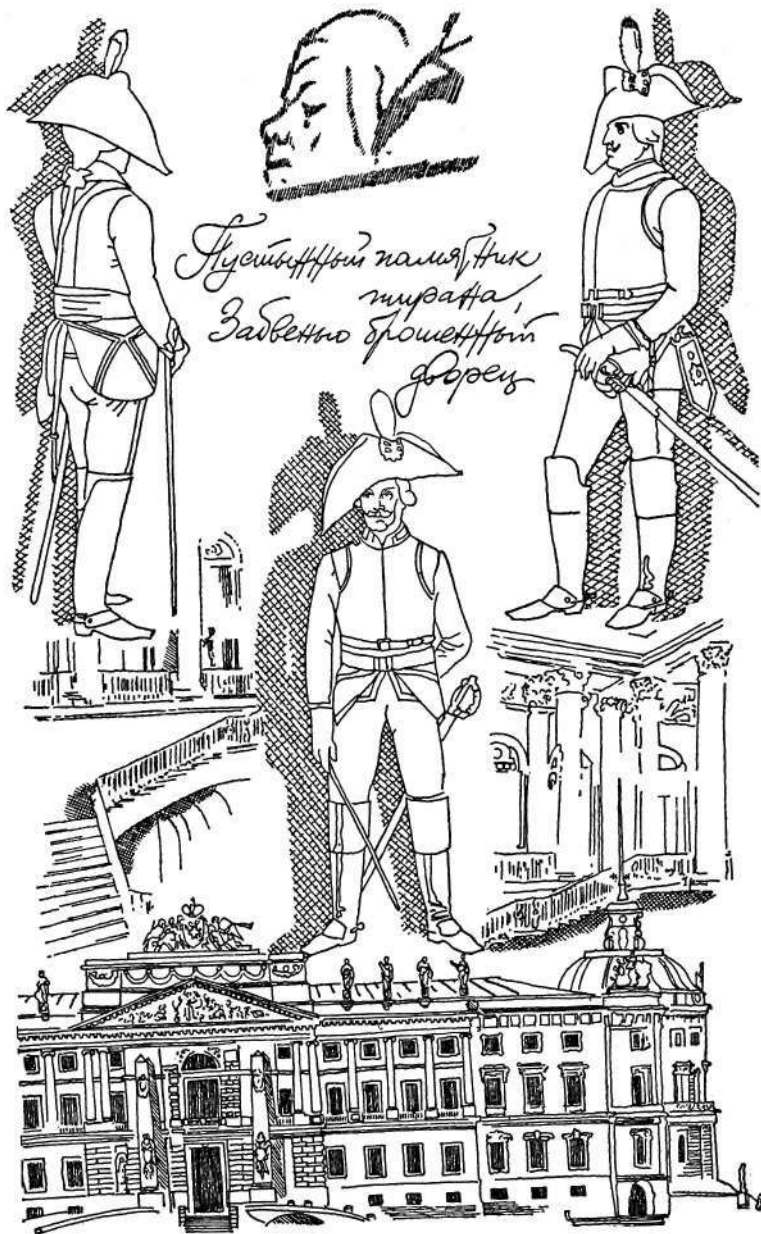 Пустынный памятник
тирана,
Забвенью брошенный
дворец